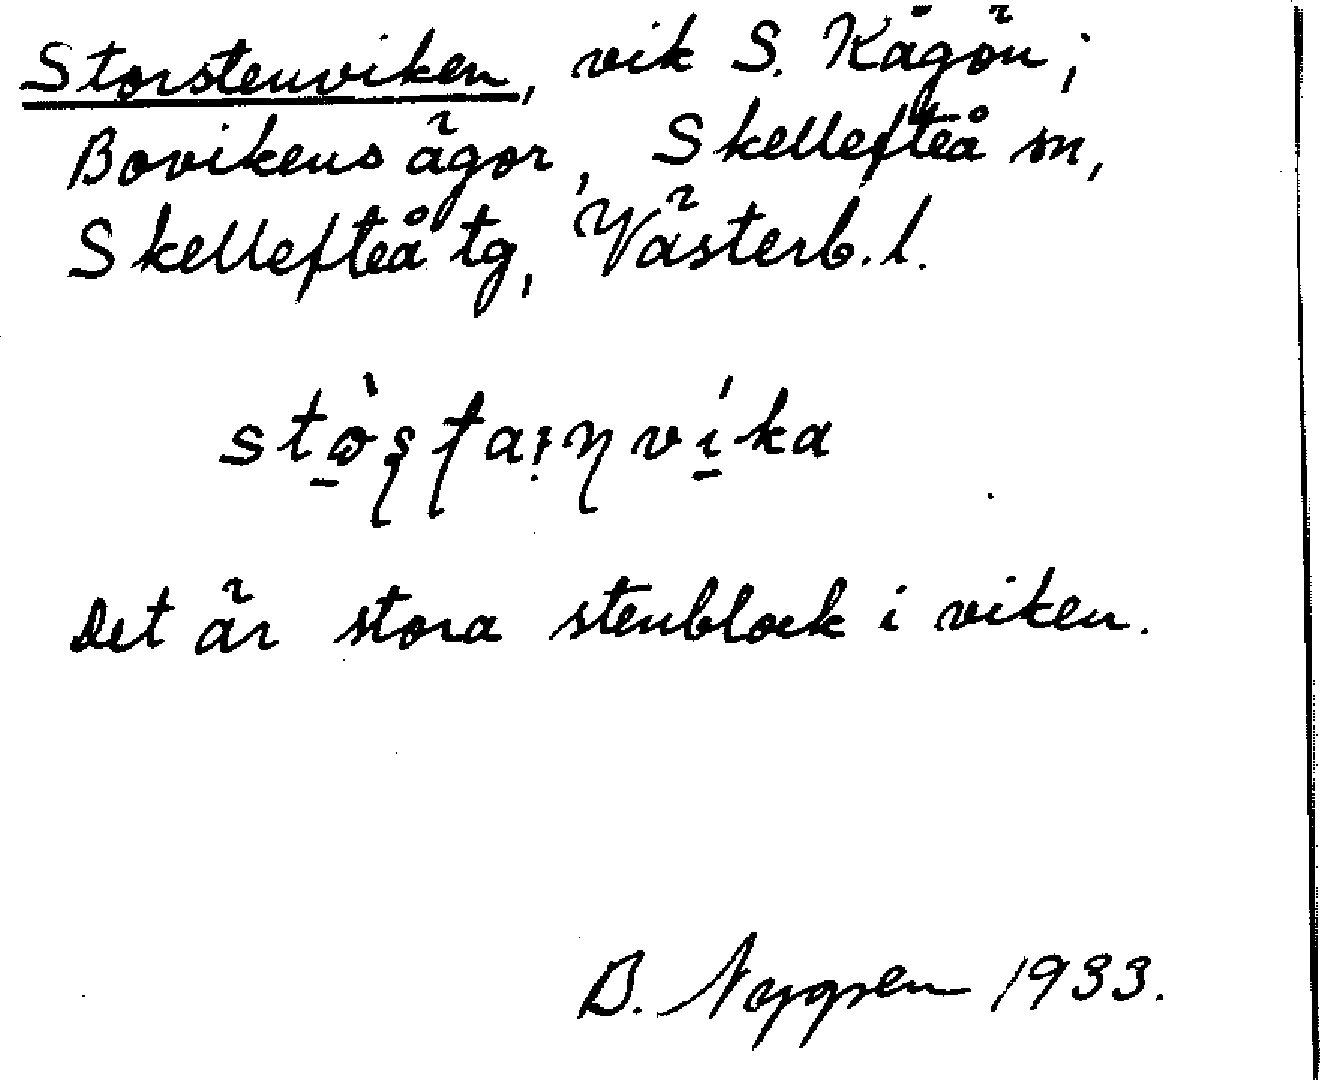 Storstenviken, vik S. Kågön;
Bovikens ägor, Skellefteå sn,
Skellefteå tg, Västerb. l.
Det är stora stenblock i viken.
B. Nygren 1933.